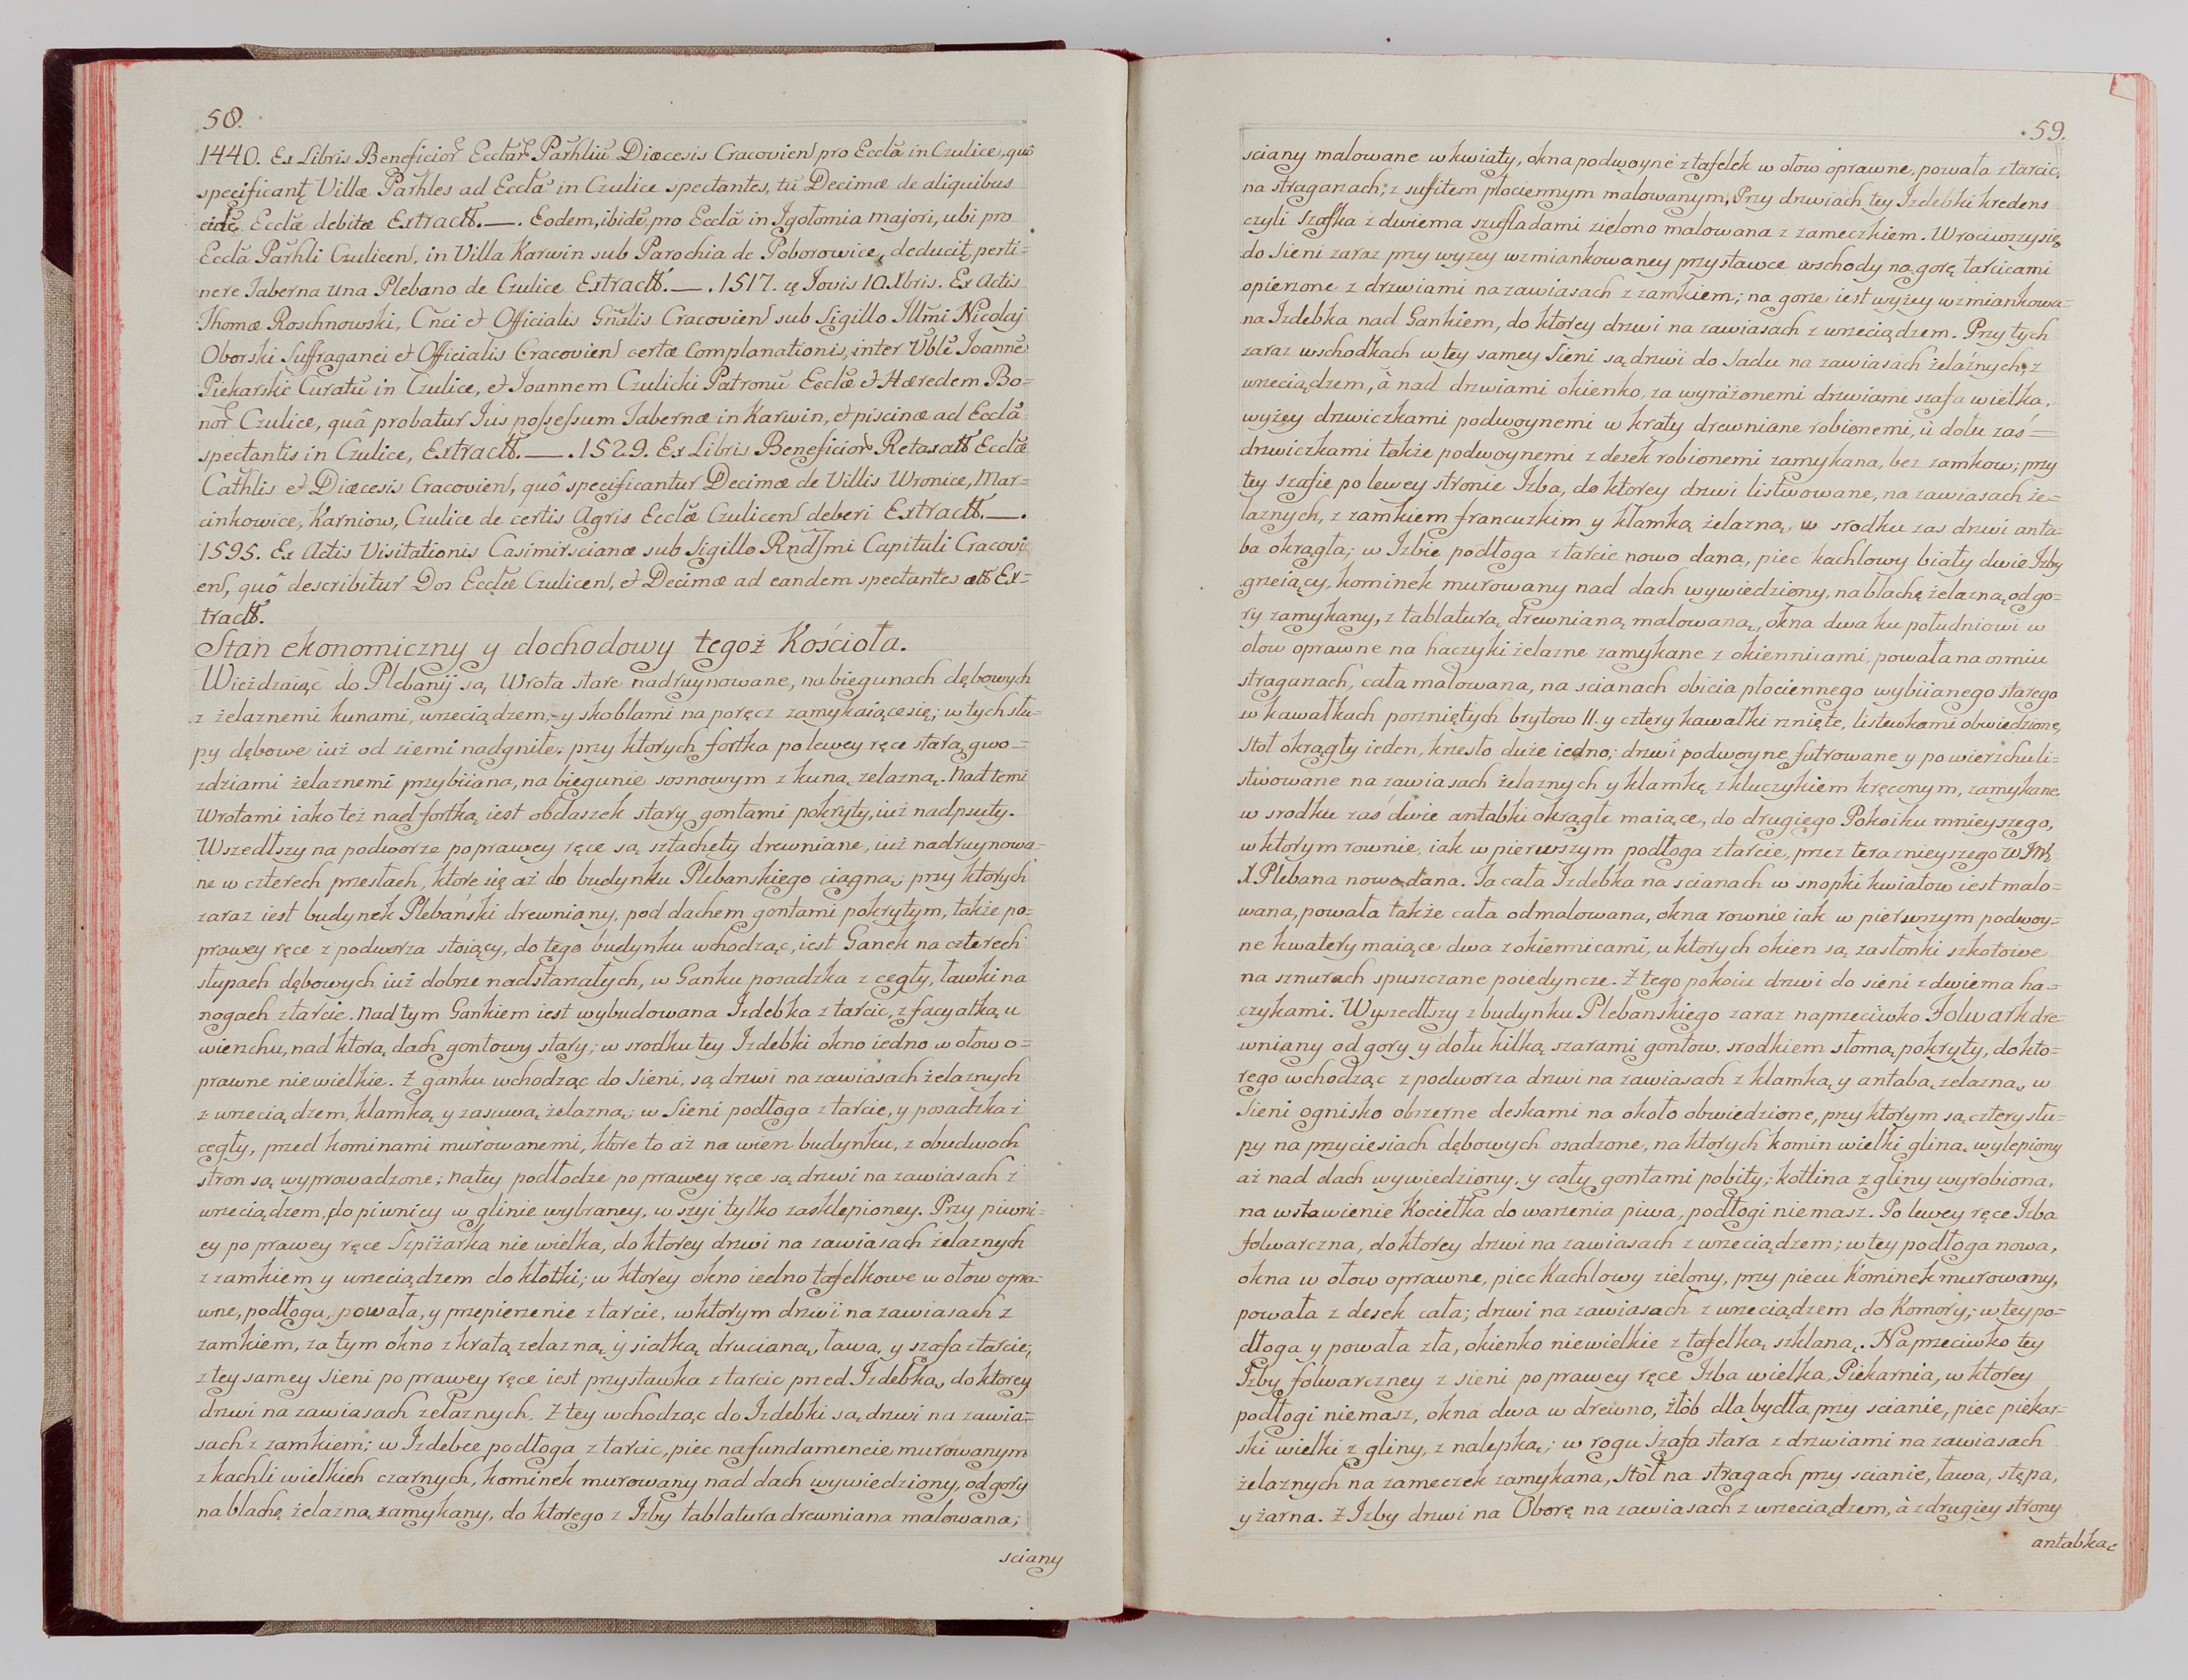 58.
1440. Ex Libris Beneficior Ecclar Parhliu Diæcesis Cracovien pro Eccla in Czulice, quô
specificant Villæ Parhles ad Eccla in Czulice spectantes, tu Decimæ de aliquibus
eide Ecclæ debitæ Extract. —. Eodem, ibide, pro Eccla in Igołomia majori, ubi pro
Eccla Parhli Czulicen, in Villa Karwin sub Parochia de Poborowice, deducit, perti=
nere Taberna una Plebano de Czulice Extract. —. 1517. Jovis 10. Xbris. Ex Actis
Thomæ Roschnowski, Cnci et Officialis Gñalis Cracovien sub Sigillo Illmi Nicolaj
Oborski Suffraganei et Officialis Cracovien certæ Complanationis, inter Vble Joanne
Piekarski Curatu in Czulice, et Joannem Czulicki Patronu Ecclæ et Hæredem Bo=
nor Czulice, quâ probatur Jus possessum Tabernæ in Karwin, et piscinæ ad Eccla
spectantis in Czulice, Extract. —. 1529. Ex Libris Beneficior Retaxat Ecclæ
Cathlis et Diæcesis Cracovien, quô specificantur Decimæ de Villis Wronice, Mar=
cinkowice, Karniow, Czulice de certis Agris Ecclæ Czulicen deberi Extract. —.
1595. Ex Actis Visitationis Casimirscianæ sub Sigillo Rndssmi Capituli Cracovi
en, quô describitur Dos Ecclæ Czulicen, et Decimæ ad eandem spectantes Ex=
tract.
Stan ekonomiczny y dochodowy tegoż Kościoła.
Wieżdzaiąc do Plebanij są Wrota stare nadruynowane, na biegunach dębowych
z żelaznemi kunami, wrzeciądzem, y skoblami na poręcz zamykaiące się; w tych słu=
py dębowe iuż od ziemi nadgniłe; przy ktorych fortka po lewey ręce stara gwo=
zdziami żelaznemi przybiiana, na biegunie sosnowym z kuną zelazną. Nad temi
Wrotami iako też nad fortką iest obdaszek stary gontami pokryty, iuż nadpsuty.
Wszedłszy na podworze po prawey ręce są sztachety drewniane, iuż nadruynowa=
ne w czterech przesłach, ktore się aż do budynku Plebanskiego ciągną; przy ktorych
zaraz iest budynek Plebański drewniany, pod dachem gontami pokrytym, także po=
prawey ręce z podworza stoiący, do tego budynku wchodząc, iest Ganek na czterech
słupach dębowych iuż dobrze nadstarzałych, w Ganku posadzka z cegły, ławki na
nogach z tarcic. Nad tym Gankiem iest wybudowana Izdebka z tarcic, z facyatką u
wierzchu, nad ktorą dach gontowy stary; w srodku tey Izdebki okno iedno w ołow o=
prawne niewielkie. Z ganku wchodząc do Sieni, są drzwi na zawiasach żelaznych
z wrzeciądzem, klamką y zasuwą żelazną; w Sieni podłoga z tarcic, y posadzka z
cegły, przed kominami murowanemi, ktore to aż na wierz budynku, z obudwoch
stron są wyprowadzone; na tey podłodze po prawey ręce są drzwi na zawiasach z
wrzeciądzem, do piwnicy w glinie wybraney, w szyi tylko zasklepioney. Przy piwni=
cy po prawey ręce Szpiżarka nie wielka, do ktorey drzwi na zawiasach żelaznych
z zamkiem y wrzeciądzem do kłotki; w ktorey okno iedno tafelkowe w ołow opra=
wne, podłoga, powała, y przepierzenie z tarcic, w ktorym drzwi na zawiasach z
zamkiem, za tym okno z kratą zelazną y siatką drucianą, ława, y szafa z tarcic;
z tey samey Sieni po prawey ręce iest przystawka z tarcic przed Izdebką, do ktorey
drzwi na zawiasach zelaznych. Z tey wchodząc do Izdebki są drzwi na zawia=
sach z zamkiem; w Izdebce podłoga z tarcic, piec na fundamencie murowanym
z kachli wielkich czarnych, kominek murowany nad dach wywiedziony, od gory
na blachę żelazną zamykany, do ktorego z Izby tablatura drewniana malowana;
sciany
59.
sciany malowane w kwiaty, okna podwoyne z tafelek w ołow oprawne, powała z tarcic,
na stragarzach; z sufitem płociennym malowanym, Przy drzwiach tey Izdebki kredens
czyli Szafka z dwiema szufladami zielono malowana z zameczkiem. Wrociwszy się
do Sieni zaraz przy wyżey wzmiankowaney przystawce wschody na gorę tarcicami
opierzone z drzwiami na zawiasach z zamkiem; na gorze iest wyżey wzmiankowa=
na Izdebka nad Gankiem, do ktorey drzwi na zawiasach z wrzeciądzem. Przy tych
zaraz wschodkach w tey samey Sieni są drzwi do Sadu na zawiasach żelaznych, z
wrzeciądzem, à nad drzwiami okienko, za wyrażonemi drzwiami szafa wielka,
wyżey drzwiczkami podwoynemi w kraty drewniane robionemi, ù dołu zaś=
drzwiczkami także podwoynemi z desek robionemi zamykana, bez zamkow; przy
tey szafie po lewey stronie Izba, do ktorey drzwi listwowane, na zawiasach że=
laznych, z zamkiem francuzkim y klamką żelazną, w srodku zas drzwi anta=
ba okrągła; w Izbie podłoga z tarcic nowo dana, piec kachlowy biały dwie Izby
grzeiący, kominek murowany nad dach wywiedziony, na blachę żelazną od go=
ry zamykany, z tablaturą drewnianą malowaną, okna dwa ku południowi w
ołow oprawne na haczyki żelazne zamykane z okiennicami, powała na osmiu
stragarzach, cała malowana, na scianach obicia płociennego wybiianego starego
w kawałkach porzniętych brytow 11. y cztery kawałki rznięte, listewkami obwiedzione,
Stoł okrągły ieden, krzesło duże iedno; drzwi podwoyne futrowane y po wierzchu li=
stwowane na zawiasach żelaznych y klamkę z kluczykiem kręconym, zamykane
w srodku zaś dwie antabki okrągłe maiące, do drugiego Pokoiku mnieyszego,
w ktorym rownie, iak w pierwszym podłoga z tarcic, przez teraznieyszego WJmć
X Plebana nowo dana. Ta cała Izdebka na scianach w snopki kwiatow iest malo=
wana, powała także cała odmalowana, okna rownie iak w pierwszym podwoy=
ne kwatery maiące dwa z okiennicami, u ktorych okien są zasłonki szkotowe
na sznurach spuszczane poiedyncze. Z tego pokoiu drzwi do sieni z dwiema ha=
czykami. Wyszedłszy z budynku Plebanskiego zaraz naprzeciwko Folwark dre=
wniany od gory y dołu kilką szarami gontow, srodkiem słomą pokryty, do kto=
rego wchodząc z podworza drzwi na zawiasach z klamką y antabą zelazną, w
Sieni ognisko obszerne deskami na około obwiedzione, przy ktorym są cztery słu=
py na przyciesiach dębowych osadzone, na ktorych komin wielki gliną wylepiony
aż nad dach wywiedziony, y cały gontami pobity; kotlina z gliny wyrobiona,
na wstawienie Kociełka do warzenia piwa, podłogi niemasz. Po lewey ręce Izba
folwarczna, do ktorey drzwi na zawiasach z wrzeciądzem; w tey podłoga nowa,
okna w ołow oprawne, piec Kachlowy zielony, przy piecu Kominek murowany,
powała z desek cała; drzwi na zawiasach z wrzeciądzem do Komory; w tey po=
dłoga y powała zła, okienko niewielkie z tafelką szklaną. Naprzeciwko tey
Izby folwarczney z sieni po prawey ręce Izba wielka, Piekarnia, w ktorey
podłogi niemasz, okna dwa w drewno, żłób dla bydła przy scianie, piec piekar=
ski wielki z gliny, z nalepką; w rogu szafa stara z drzwiami na zawiasach
żelaznych na zameczek zamykana, Stół na stragach przy scianie, ława, stępa,
y żarna. Z Izby drzwi na Oborę na zawiasach z wrzeciądzem, à z drugiey strony
antabką